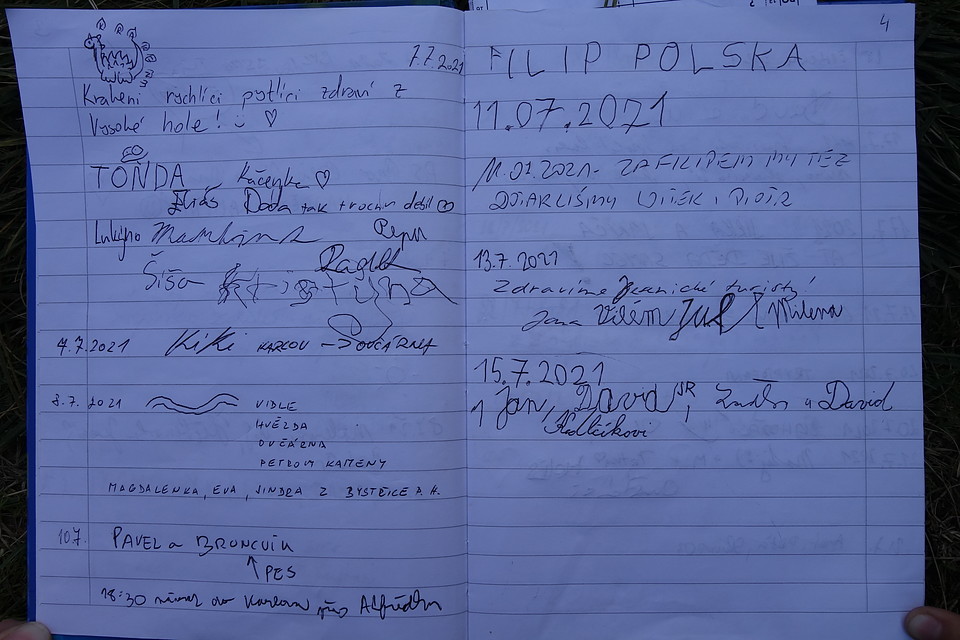 7.7.2021
rychlící pytlíci zdraví z
Vysoké hole!
TOŇDA Káčenka
Eliáš Doda tak trochu debil
Lukýno Martina Pepa
Šiša
4.7.2021 KiKi KARLOV → OVČÁRNA
8.7.2021 VIDLE
HVĚZDA
OVČÁRNA
PETROVY KAMENY
MAGDALENKA, EVA, JINDRA Z BYSTŘICE P. H.
10.7. PAVEL a BRONCVIK
PES
18:30 návrat do Karlova přes Alfrédku
4
FILIP POLSKA
11.07.2021
ZA FILIPEM MY TEŻ
DOTARLIŚMY WITEK I PIOTR
13.7.2021
Zdravíme turisty!
Jana Vilém Milena
15.7.2021
Jan, David JR, a David